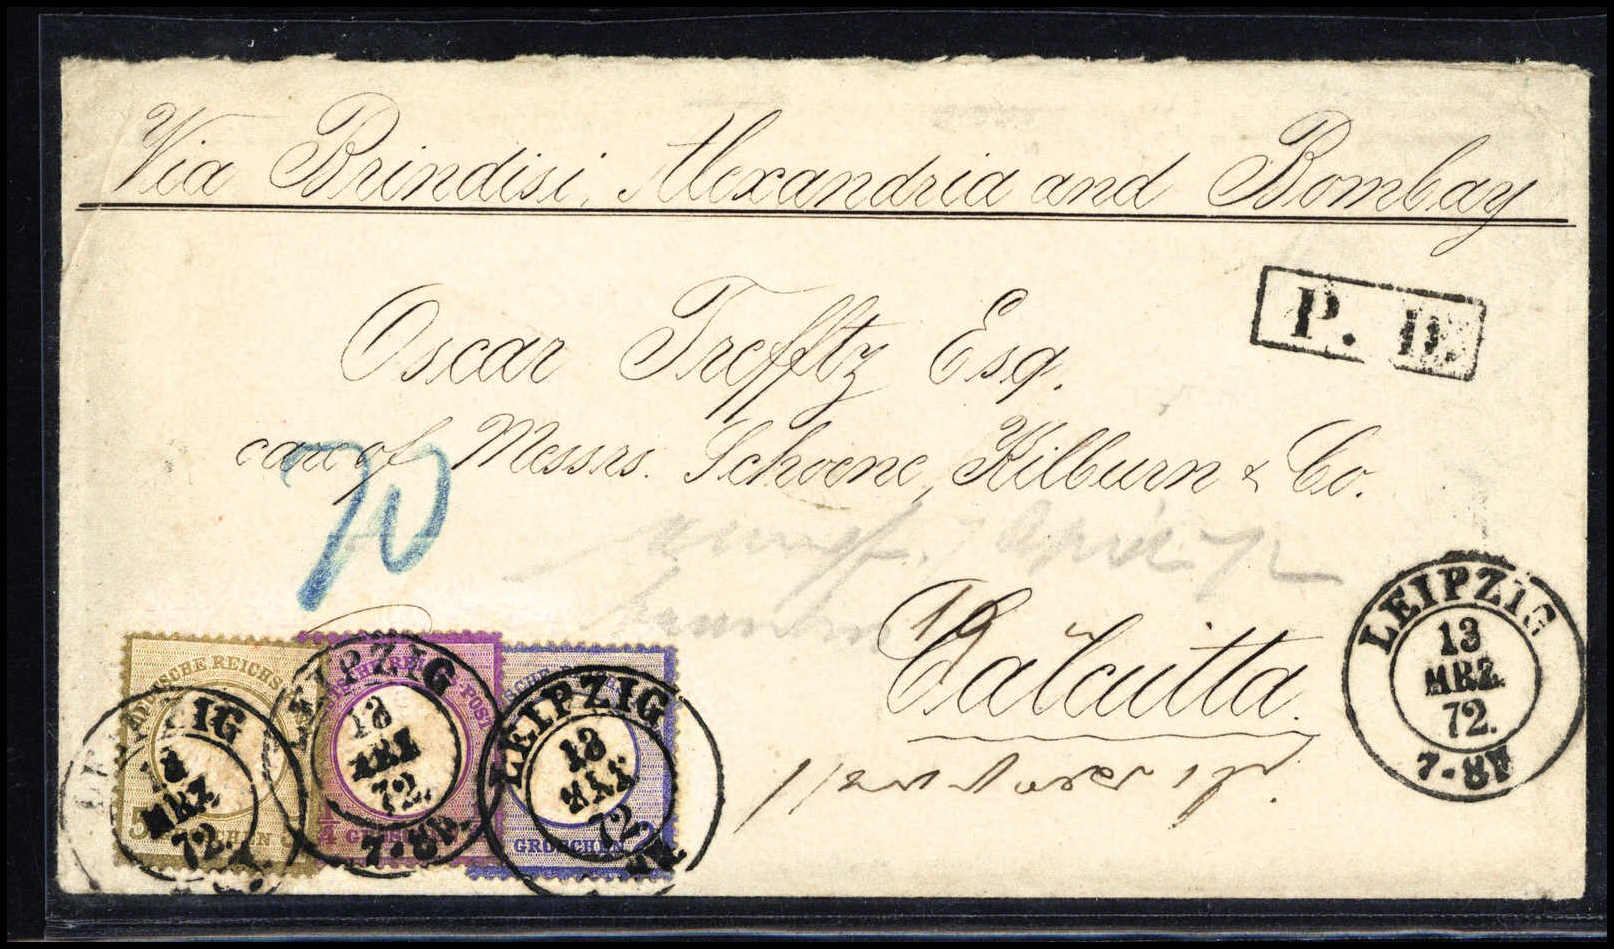 Via Brindisi, Alexandria and Bombay
P. D.
Oscar Trefftz Esq.
care of Messrs. Schoene, Kilburn & Co.
70
Calcutta.
LEIPZIG
13
MRZ
72.
7-8F
DEUTSCHE REICHS
5 GROSCHEN
LEIPZIG
13
MRZ
72
REICHS-POST
1/4 GROSCHEN
LEIPZIG
13
MRZ
72.
7-8F.
GROSCHEN 2
LEIPZIG
13
MRZ
72